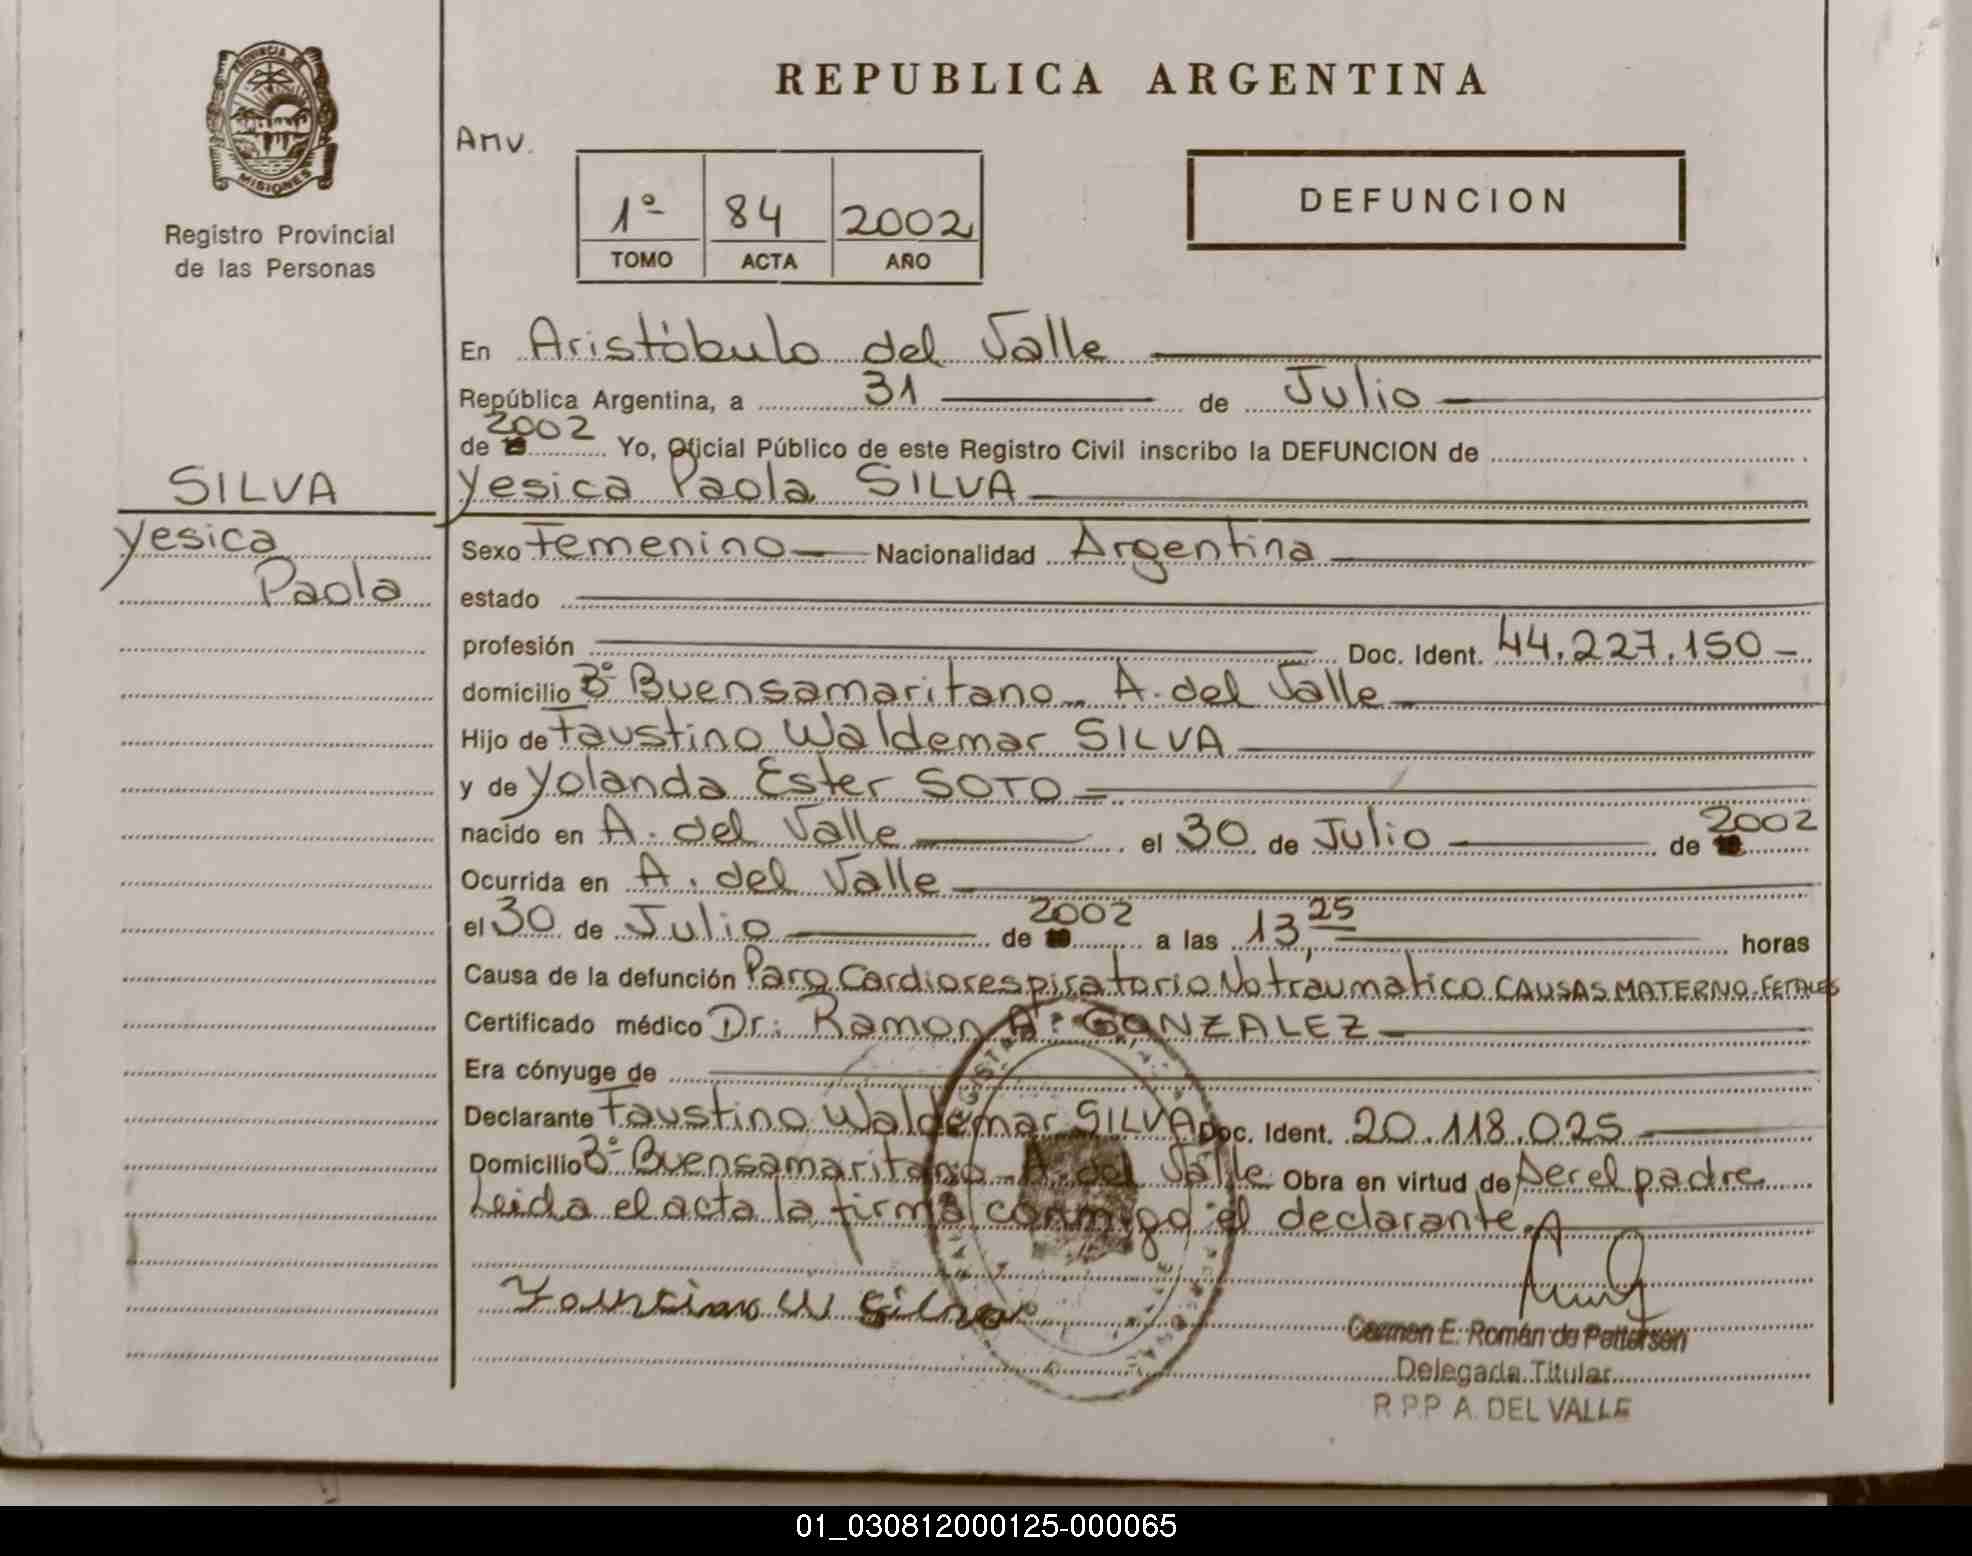 PROVINCIA DE
MISIONES
Registro Provincial
de las Personas
REPUBLICA ARGENTINA
Anv.
1º 84 2002
TOMO ACTA AÑO
DEFUNCION
En Aristóbulo del Valle
República Argentina, a 31 de Julio
de 2002 Yo, Oficial Público de este Registro Civil inscribo la DEFUNCION de
SILVA
Yesica Paola SILVA
Yesica
Paola
Sexo Femenino Nacionalidad Argentina
estado
profesión Doc. Ident. 44.227.150
domicilio Bº Buensamaritano - A. del Valle
Hijo de Faustino Waldemar SILVA
y de Yolanda Ester SOTO
nacido en A. del Valle el 30 de Julio de 2002
Ocurrida en A. del Valle
el 30 de Julio de 2002 a las 13,25 horas
Causa de la defunción Paro Cardiorespiratorio No traumatico CAUSAS MATERNO-FETALES
Certificado médico Dr: Ramon A. GONZALEZ
Era cónyuge de
Declarante Faustino Waldemar SILVA Doc. Ident. 20.118.025
Domicilio Bº Buensamaritano - A. del Valle Obra en virtud de ser el padre
Leida el acta la firma conmigo el declarante.
Faustino W Silva
Carmen E. Román de Pettersen
Delegada Titular
R.P.P A. DEL VALLE
01_030812000125-000065